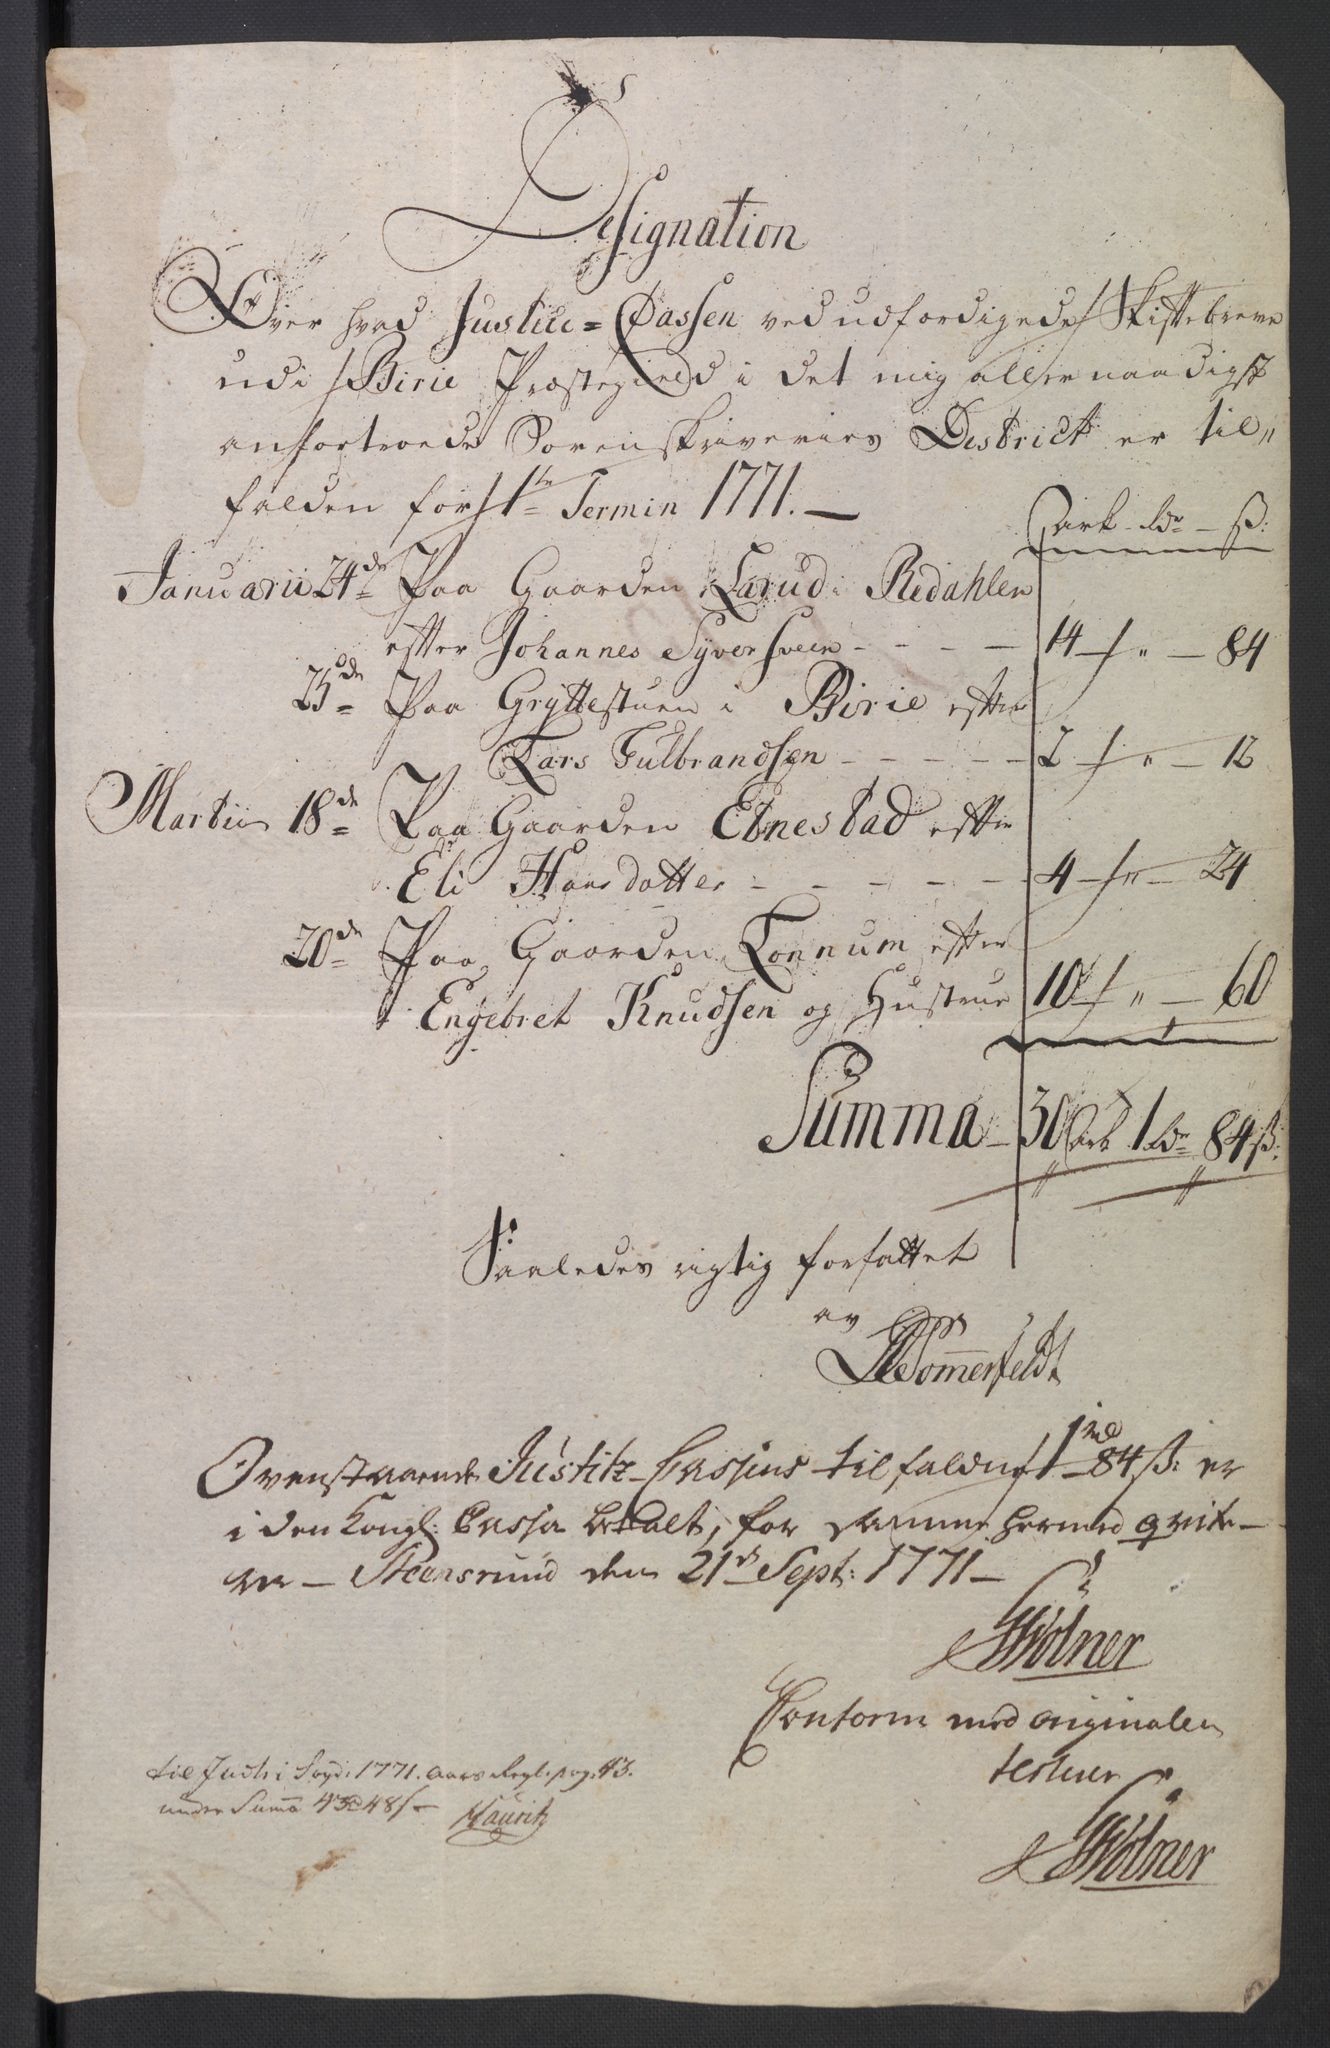 Designation
Over hvad Justice=Cassen ved udfærdigede Skiftebreve
udi Birie Præstegield i det mig allernaadigst
anfortroede Sorenskriveries District er til„
falden for 1te Termin 1771.—
Ark - Rdr - ß:
Januarii 24de Paa Gaarden Larud i Redahlen
efter Johannes Syversveen - - - - 14 — „ — 84
25de Paa Gryttestuen i Birie efter
Lars Gulbrandsen - - - - - 2 — „ — 12
Martii 18de Paa Gaarden Ebnestad efter
Eli Hansdatter - - - - - - 4 — „ — 24
20de Paa Gaarden Lonnum efter
Engebret Knudsen og Hustrue 10 — „ — 60
Summa - 30 Ark 1 Rdr 84 ß:
Saaledes rigtig forfattet
av
Sommerfeldt
Ovenstaaende Justitz-Cassens tilfaldne 1 rd 84 ß: er
i den Kongl: Cassa betalt, for samme hermed qvite-
rer — Steensrund den 21de Sept: 1771 —
Wölner
Conform med originalen
testerer
Wölner
til Justi: Sagd: 1771. aars Regl. pag: 43.
under Summa 43 rd 48 ß —
Lauritz